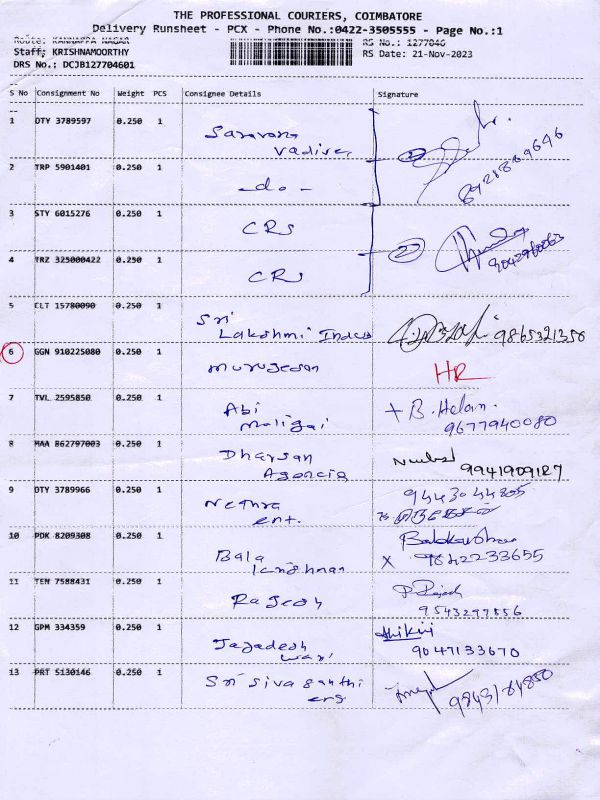 THE PROFESSIONAL COURIERS, COIMBATORE
Delivery Runsheet - PCX - Phone No.:0422-3505555 - Page No.:1
Route: KANNAPPA NAGAR
RS No.: 1277046
Staff: KRISHNAMOORTHY
RS Date: 21-Nov-2023
DRS No.: DCJB127704601
S No Consignment No Weight PCS Consignee Details Signature
1 OTY 3789597 0.250 1 Saravana
Vadivel
2 TRP 5901401 0.250 1 - do - 2
3 STY 6015276 0.250 1 CRS
4 TRZ 325000422 0.250 1 CRS 2
5 CLT 15780090 0.250 1 Sri
Lakshmi 9865321350
6 GGN 910225080 0.250 1 Murugesan HR
7 TVL 2595850 0.250 1 Abi + B. Helan.
Maligai 9677940080
8 MAA 862797003 0.250 1 Dharsan
Agencies 9941909127
9 OTY 3789966 0.250 1 Nethra
ent.
10 PDK 8209308 0.250 1 Bala
Krishnan x 9842233655
11 TEN 7588431 0.250 1 Rajesh P. Rajesh
9543297556
12 GPM 334359 0.250 1 Jagadesh
wari 9047133670
13 PRT 5130146 0.250 1 Sri Siva Santhi